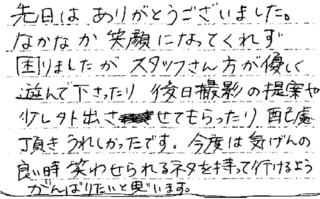 先日は ありがとうございました。
なかなか 笑顔に なってくれず
困りましたが スタッフさん方が 優しく
遊んで下さったり 後日撮影の提案や
少し外出させてもらったり 配慮
頂き うれしかったです。今度は 気げんの
良い時 笑わせられるネタを持って行けるよう
がんばりたいと思います。